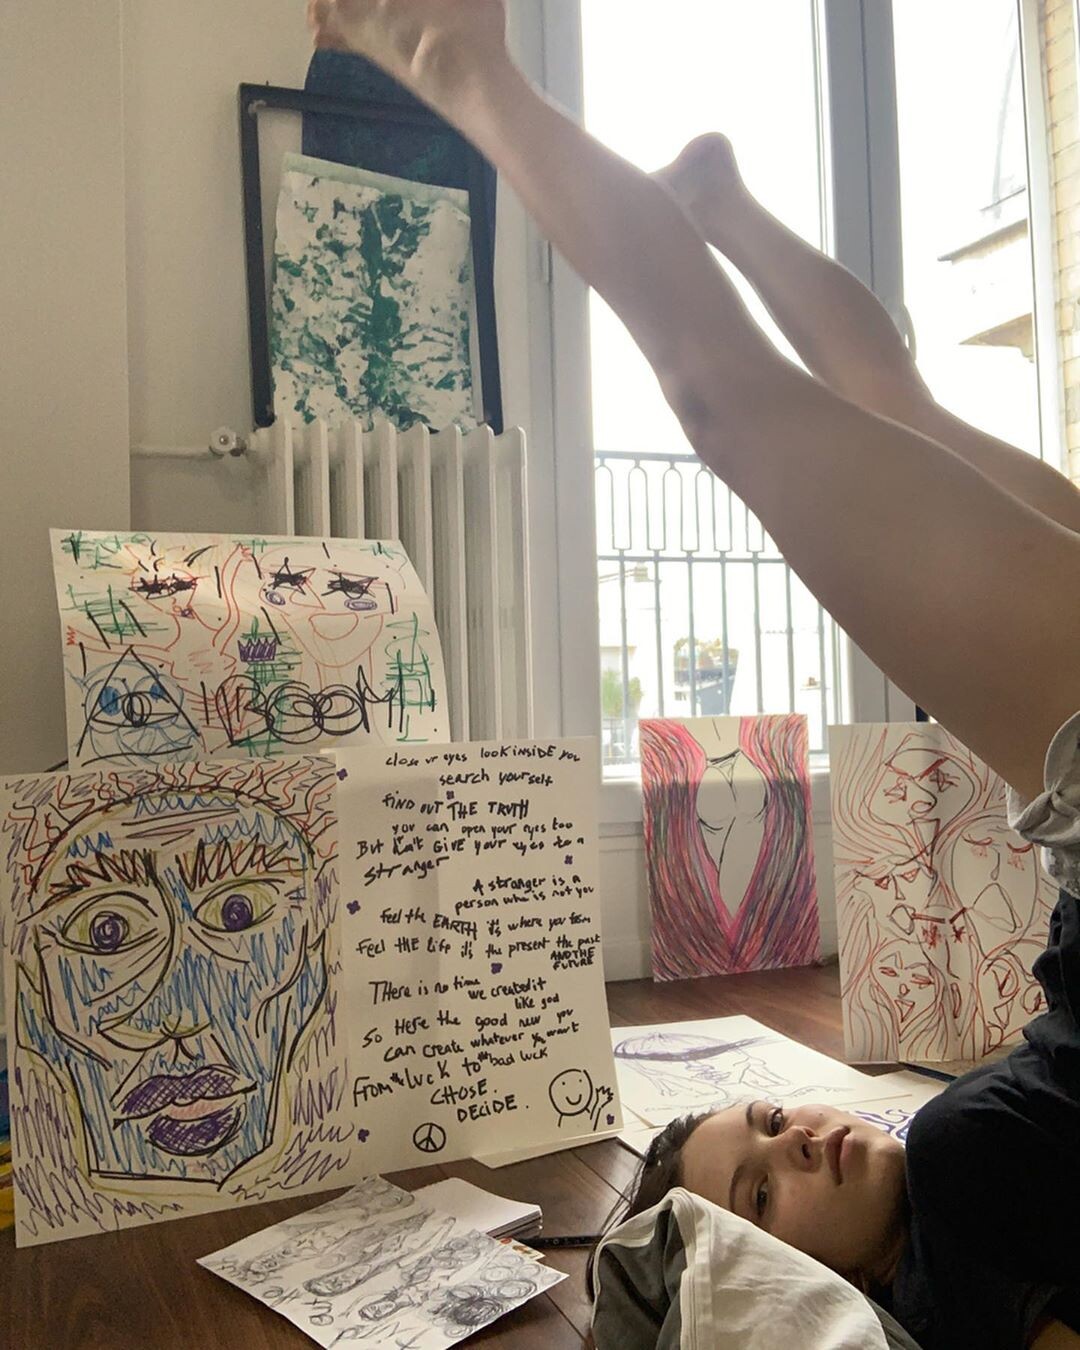 BOOM
close ur eyes look inSIDE you
search yourself
FIND OUT THE TRUTH
you can open your eyes too
But don't GIVE your eyes to a
stranger
A stranger is a
person who is not you
Feel the EARTH it's where you from
Feel THE life it's the present the past
AND THE
FUTURE
THere is no time we created it
like god
so Here the good new you
can create whatever you want
From the luck to the bad luck
CHOSE.
DECIDE.